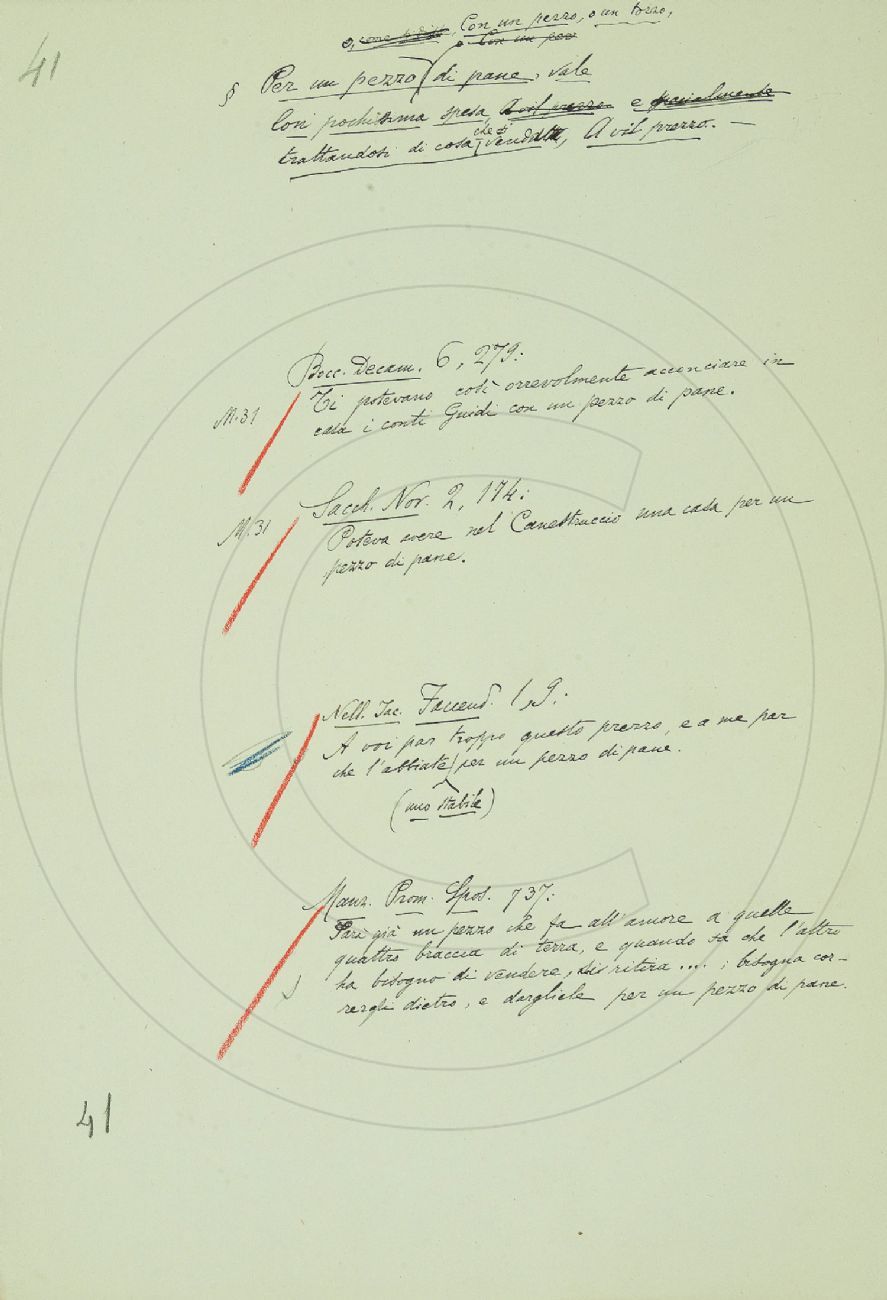 41
o, Con un pezzo, o un tozzo,
o Con un pez
§ Per un pezzo di pane, vale
Con pochissima spesa A vil prezzo e specialmente
trattandosi di cosa che si venda, A vil prezzo. —
Bocc. Decam. 6, 279:
M. 31
Ti potevano così orrevolmente acconciare in
casa i conti Guidi con un pezzo di pane.
Sacch. Nov. 2, 174:
M. 31
Poteva avere nel Canestruccio una casa per un
pezzo di pane.
Nell. Jac. Faccend. 1, 9:
A voi par troppo questo prezzo, e a me par
che l'abbiate per un pezzo di pane.
(uno stabile)
Manz. Prom. Spos. 737:
Par già un pezzo che fa all'amore a quelle
quattro braccia di terra, e quando sa che l'altro
ha bisogno di vendere, si ritira....; bisogna cor-
rergli dietro, e dargliele per un pezzo di pane.
41